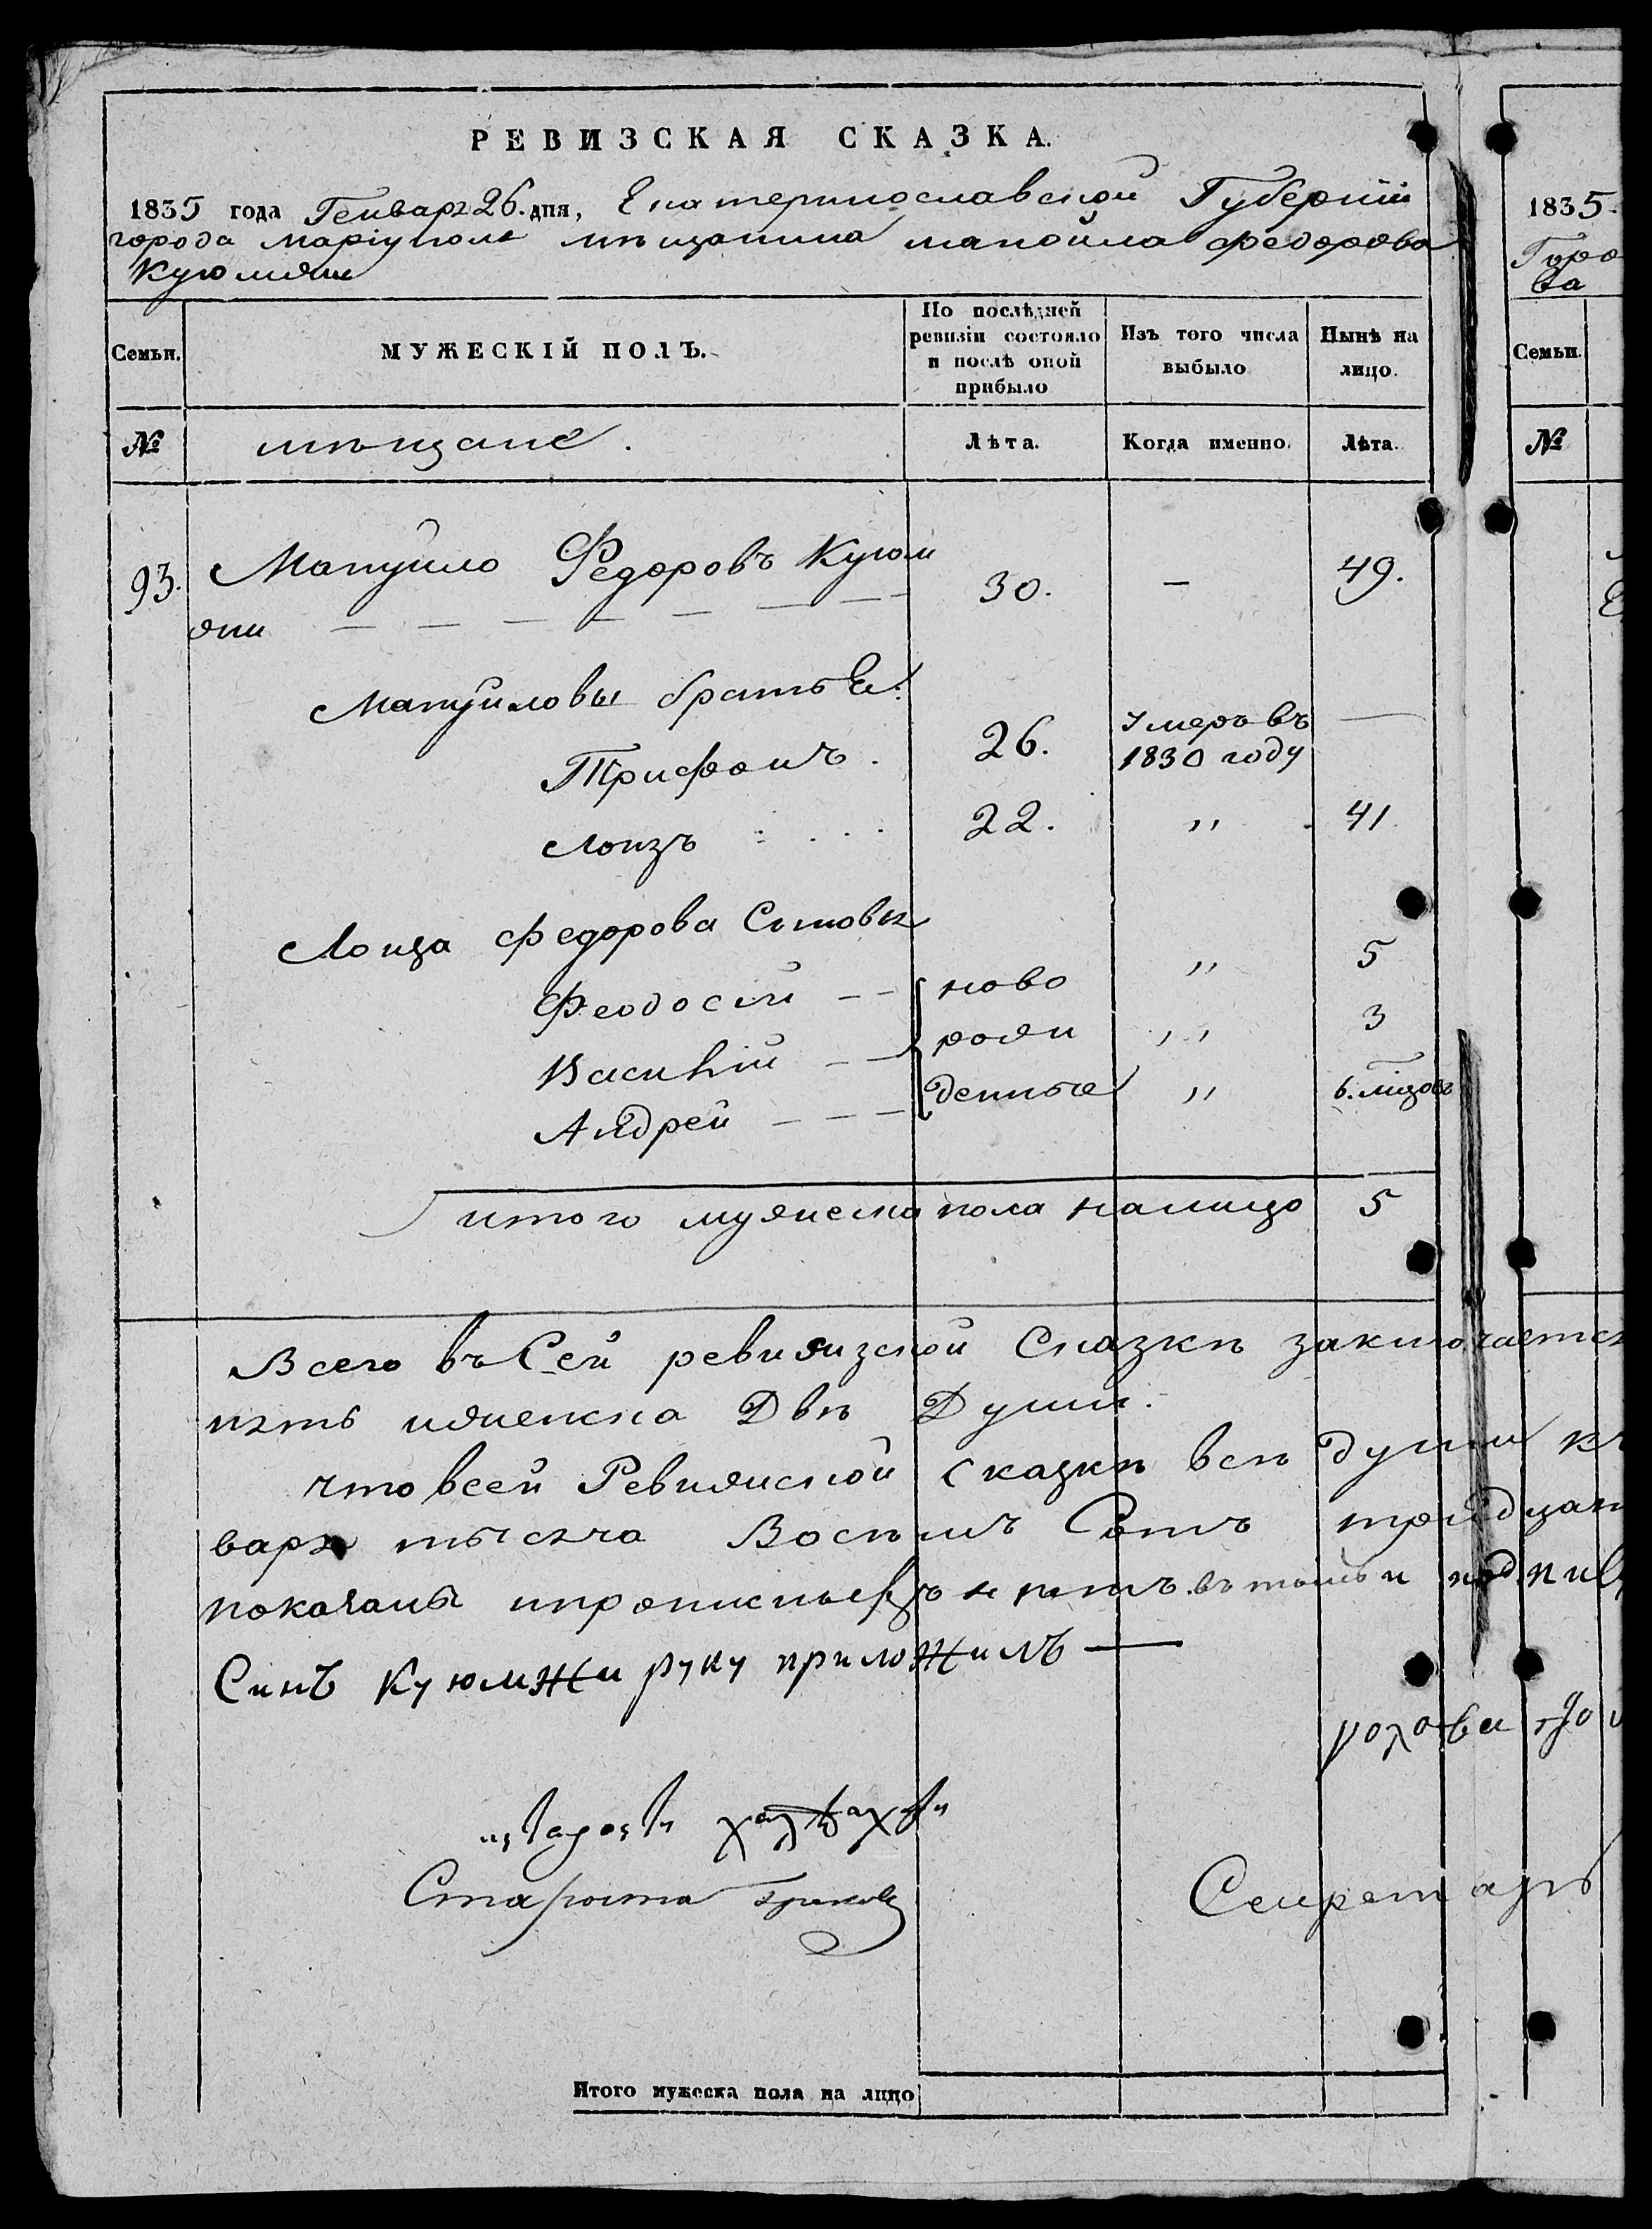 РЕВИЗСКАЯ СКАЗКА.
1835 года Генваря 26. дня, Екатеринославской Губернии
города Маріуполя мѣщанина манойла федорова
Куюмжи
Семьи. МУЖЕСКІЙ ПОЛЪ. По послѣдней ревизіи состояло и послѣ оной прибыло Изъ того числа выбыло Нынѣ на лицо.
№ мѣщане. Лѣта. Когда именно. Лѣта.
93. Мануило Федоровъ Куюм 30. — 49.
жи
Мануиловы братья:
Трифонъ. 26. Умеръ въ 1830 году —
Лоизъ 22. " 41
Лоиза Федорова Сыновья
Феодосій ново " 5
Василій рожд " 3
Андрей денные " 6. мцовъ
итого мужеска пола налицо 5
Всего въ Сей ревижзской Сказкѣ заключается
пять иженска Двѣ Души.
что всей Ревижской сказкѣ всѣ души к
варя тысяча Восемъ Сотъ тридцат
показаны ипрописныхъ нетъ. въ томъ и подпис
Синъ Куюмжи руку приложилъ —
Староста
Секретарь
Итого мужеска пола на лицо
1835.
Горо
ва
Семьи.
№